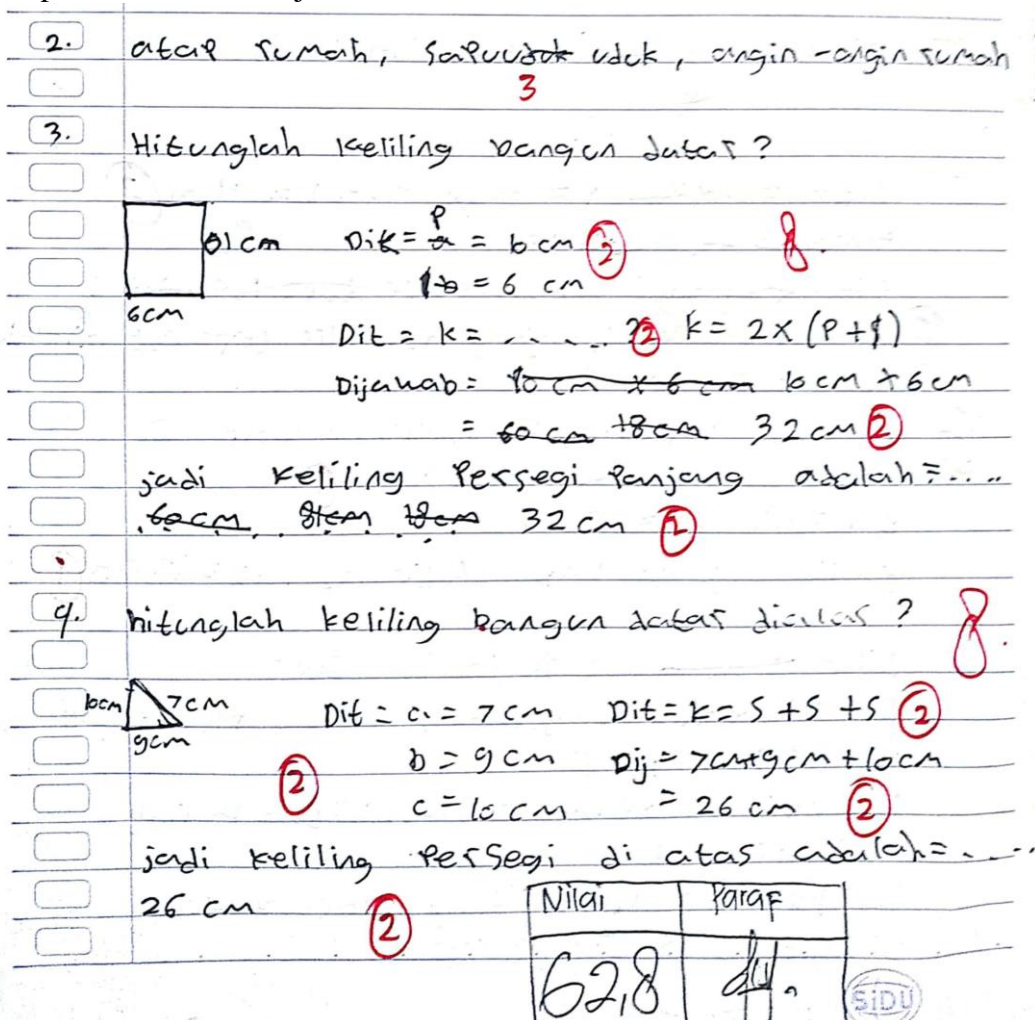 2. atap rumah, sapu uduk, angin-angin rumah
3
3. Hitunglah keliling bangun datar?
Dik = p = 10 cm 2 8.
l = 6 cm
6cm
Dit = k = ..... ? 2 k = 2x (P+l)
Dijawab = 10 cm x 6 cm 10 cm + 6 cm
= 60 cm 18 cm 32 cm 2
jadi keliling Persegi Panjang adalah = .....
60cm 81cm 18cm 32 cm 2
4. hitunglah keliling bangun datar diatas? 8.
10cm 7cm Dit = a = 7 cm Dit = k = S + S + S 2
9cm b = 9 cm Dij = 7cm+9cm+10cm
2 c = 10 cm = 26 cm 2
jadi keliling Persegi di atas adalah = .....
26 cm 2
Nilai Paraf
62,8
SiDU